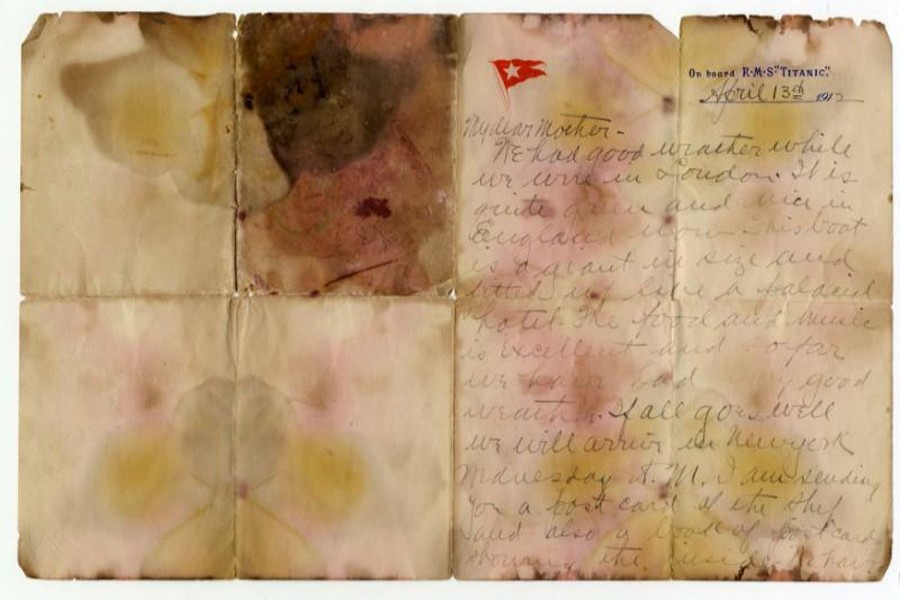 On board R·M·S "TITANIC".
April 13th 1912
My dear Mother -
We had good weather while
we were in London. It is
quite green and nice in
England now. This boat
is a giant in size and
fitted up like a palacial
hotel. The food and music
is excellent and so far
we have had very good
weather. If all goes well
we will arrive in New York
Wednesday A. M. I am sending
you a post card of the ship
and also a book of post cards
showing the inside.